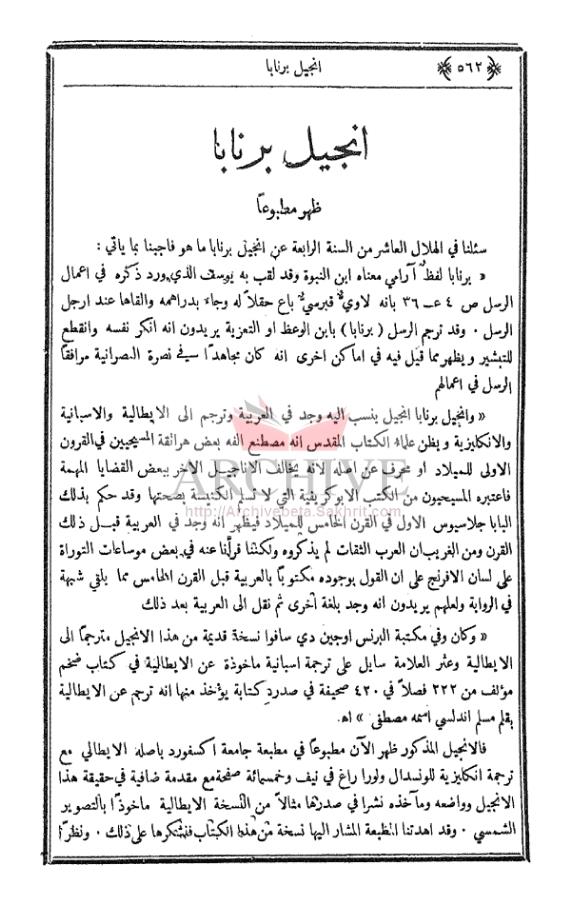 انجيل برنابا
﴿ ٥٦٢ ﴾
انجيل برنابا
ظهر مطبوعًا
سئلنا في الهلال العاشر من السنة الرابعة عن انجيل برنابا ما هو فاجبنا بما يأتي :
« برنابا لفظٌ آرامي معناه ابن النبوة وقد لقب به يوسف الذي ورد ذكره في اعمال
الرسل ص ٤ عـ ٣٦ بانه لاويٌّ قبرسيٌّ باع حقلاً له وجاء بدراهمه والقاها عند ارجل
الرسل . وقد ترجم الرسل ( برنابا ) بابن الوعظ او التعزية يريدون انه انكر نفسه وانقطع
للتبشير ويظهر مما قيل فيه في اماكن اخرى انه كان مجاهدًا في نصرة النصرانية مرافقًا
الرسل في اعمالهم
« وانجيل برنابا انجيل ينسب اليه وجد في العربية وترجم الى الايطالية والاسبانية
والانكليزية ويظن علماء الكتاب المقدس انه مصطنع الفه بعض هراتقة المسيحيين في القرون
الاولى للميلاد او محرف عن اصله لانه يخالف الاناجيل الاخر ببعض القضايا المهمة
فاعتبره المسيحيون من الكتب الابوكريفية التي لا تسلم الكنيسة بصحتها وقد حكم بذلك
البابا جلاسيوس الاول في القرن الخامس للميلاد فيظهر انه وجد في العربية قبل ذلك
القرن ومن الغريب ان العرب الثقات لم يذكروه ولكننا قرأنا عنه في بعض موساعات التوراة
على لسان الافرنج على ان القول بوجوده مكتوبًا بالعربية قبل القرن الخامس مما يلقي شبهة
في الرواية ولعلهم يريدون انه وجد بلغة أخرى ثم نقل الى العربية بعد ذلك
« وكان وفي مكتبة البرنس اوجين دي سافوا نسخة قديمة من هذا الانجيل مترجمًا الى
الايطالية وعثر العلامة سايل على ترجمة اسبانية ماخوذة عن الايطالية في كتاب ضخم
مؤلف من ٢٢٢ فصلاً في ٤٢٠ صحيفة في صدره كتابة يؤخذ منها انه ترجم عن الايطالية
بقلم مسلم اندلسي اسمه مصطفى » اهـ
فالانجيل المذكور ظهر الآن مطبوعًا في مطبعة جامعة اكسفورد باصله الايطالي مع
ترجمة انكليزية للونسدال ولورا راغ في نيف وخمسمائة صفحة مع مقدمة ضافية في حقيقة هذا
الانجيل وواضعه ومآخذه نشرا في صدرها مثالاً من النسخة الايطالية ماخوذًا بالتصوير
الشمسي . وقد اهدتنا المطبعة المشار اليها نسخة من هذا الكتاب فنشكرها على ذلك . ونظرًا
ARCHIVE
http://Archivebeta.Sakhrit.com